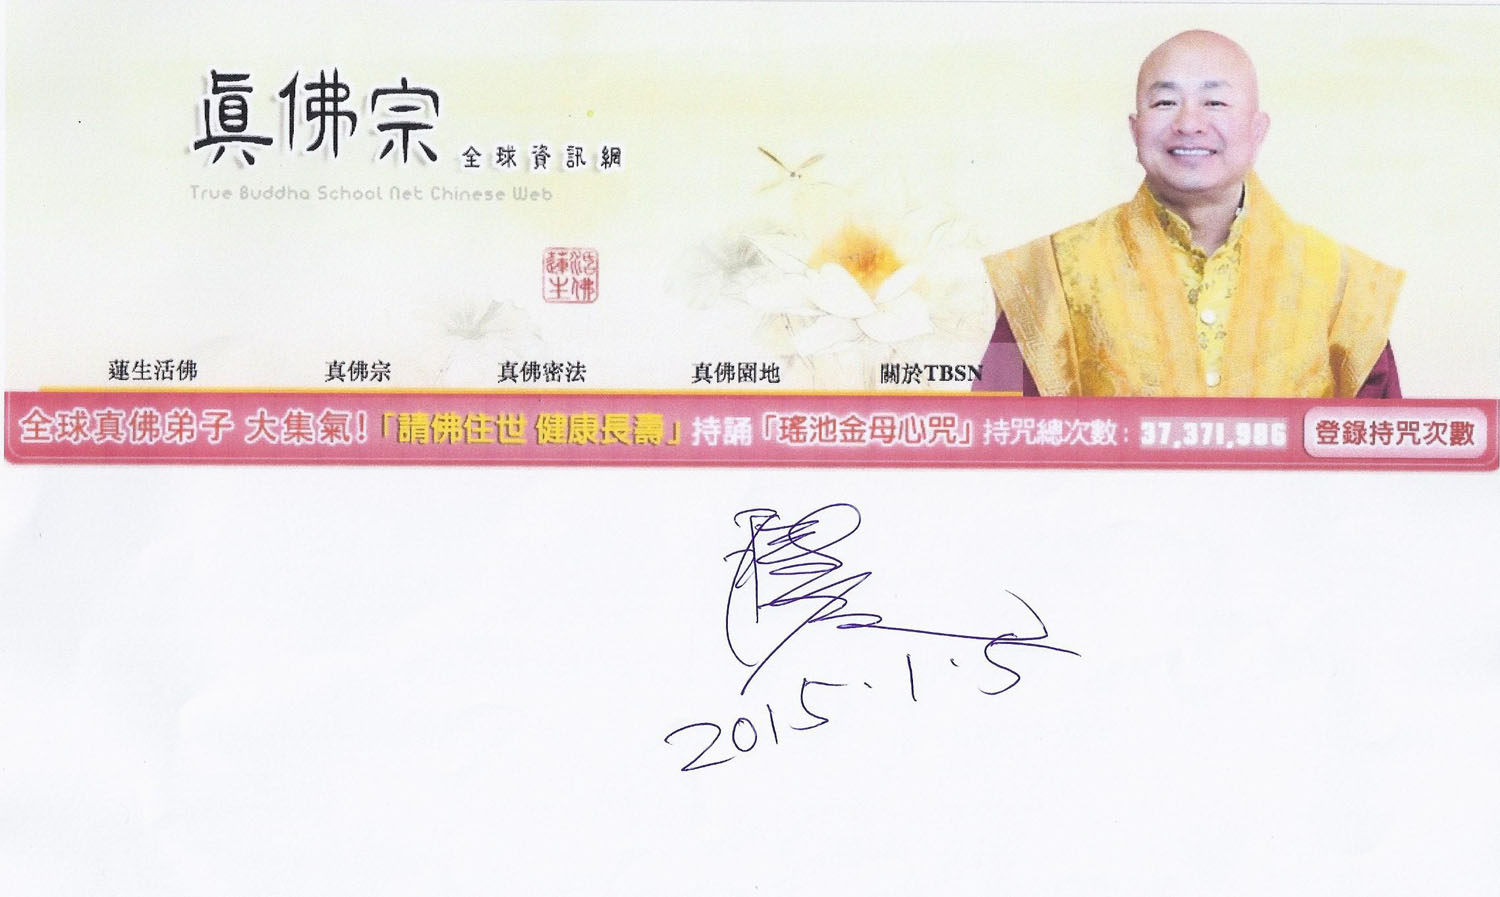 真佛宗 全球資訊網
True Buddha School Net Chinese Web
蓮生活佛
蓮生活佛 真佛宗 真佛密法 真佛園地 關於TBSN
全球真佛弟子 大集氣!「請佛住世 健康長壽」持誦「瑤池金母心咒」持咒總次數: 37,371,986 登錄持咒次數
2015.1.5